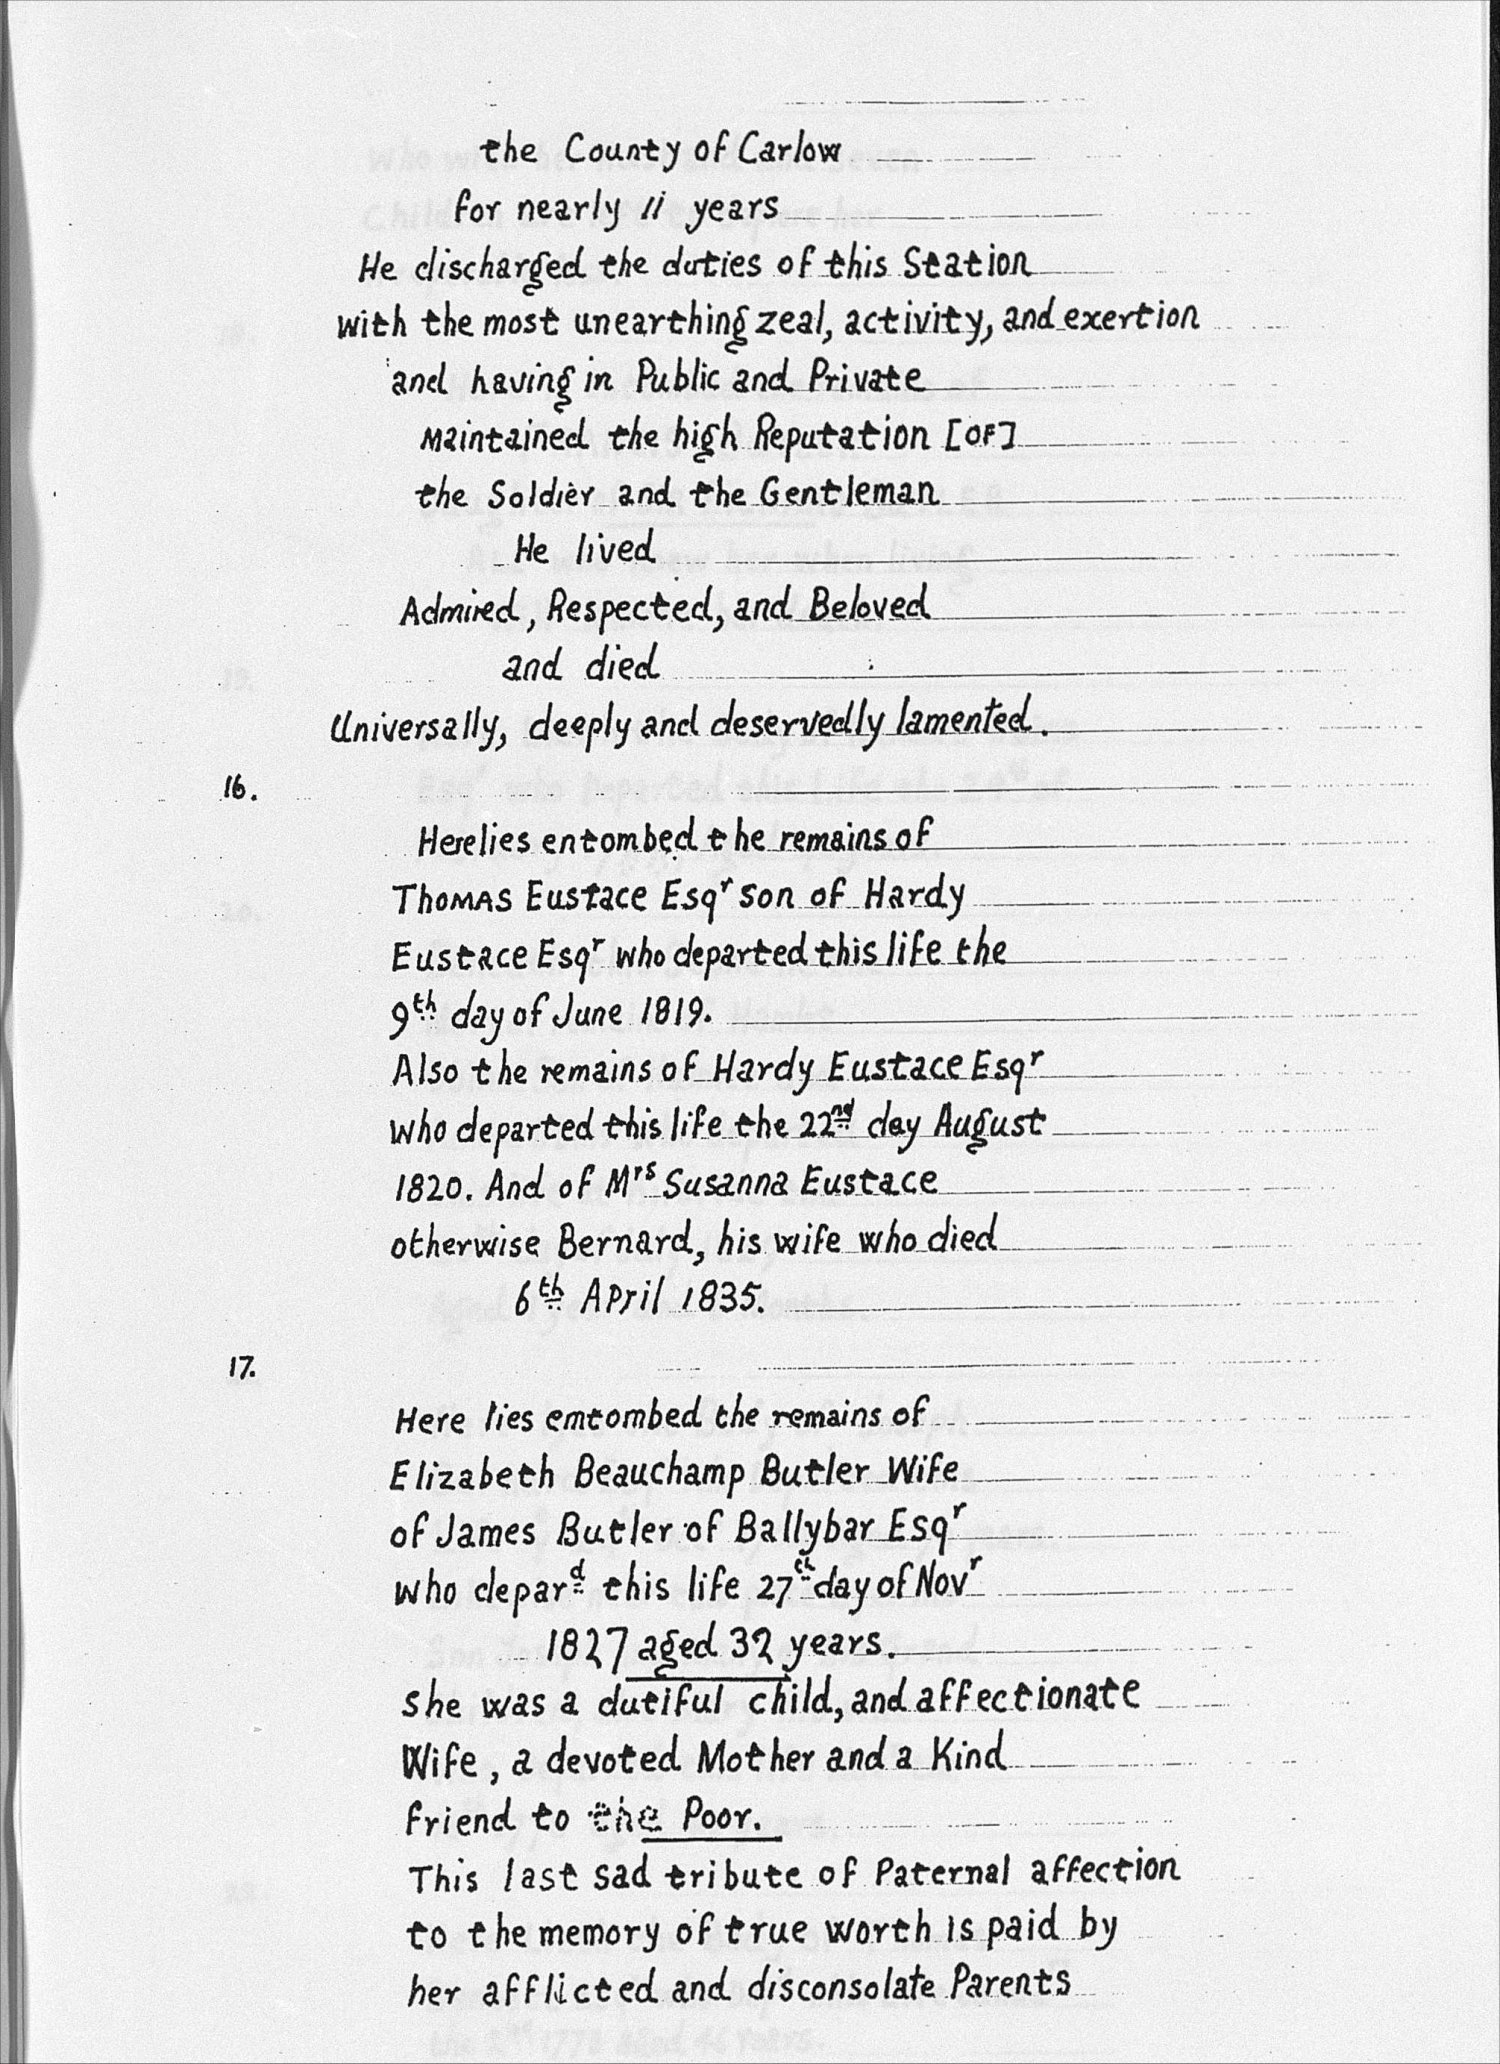 the County of Carlow
for nearly 11 years
He discharged the duties of this Station
with the most unearthing zeal, activity, and exertion
and having in Public and Private
Maintained the high Reputation [OF]
the Soldier and the Gentleman
He lived
Admired, Respected, and Beloved
and died
Universally, deeply and deservedly lamented.
16.
Here lies entombed the remains of
Thomas Eustace Esqr son of Hardy
Eustace Esqr who departed this life the
9th day of June 1819.
Also the remains of Hardy Eustace Esqr
who departed this life the 22nd day August
1820. And of Mrs Susanna Eustace
otherwise Bernard, his wife who died
6th April 1835.
17.
Here lies emtombed the remains of
Elizabeth Beauchamp Butler Wife
of James Butler of Ballybar Esqr
who depard this life 27th day of Novr
1827 aged 32 years.
She was a dutiful child, and affectionate
Wife, a devoted Mother and a Kind
friend to the Poor.
This last sad tribute of Paternal affection
to the memory of true worth is paid by
her afflicted and disconsolate Parents